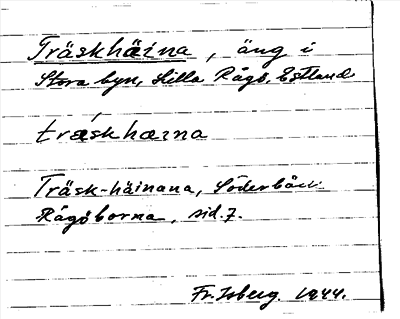 Träskhäina, äng i
Stora byn, Lilla Rågö, Estland
træskhæɪna
Träsk-häinana, Söderbäck
Rågöborna, sid. 7.
Fr. Isberg. 1944.